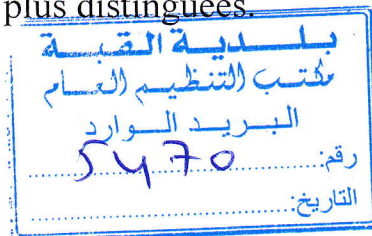 plus distinguées.
بلدية القبة
مكتب التنظيم العام
البريد الوارد
رقم: 5470
التاريخ: